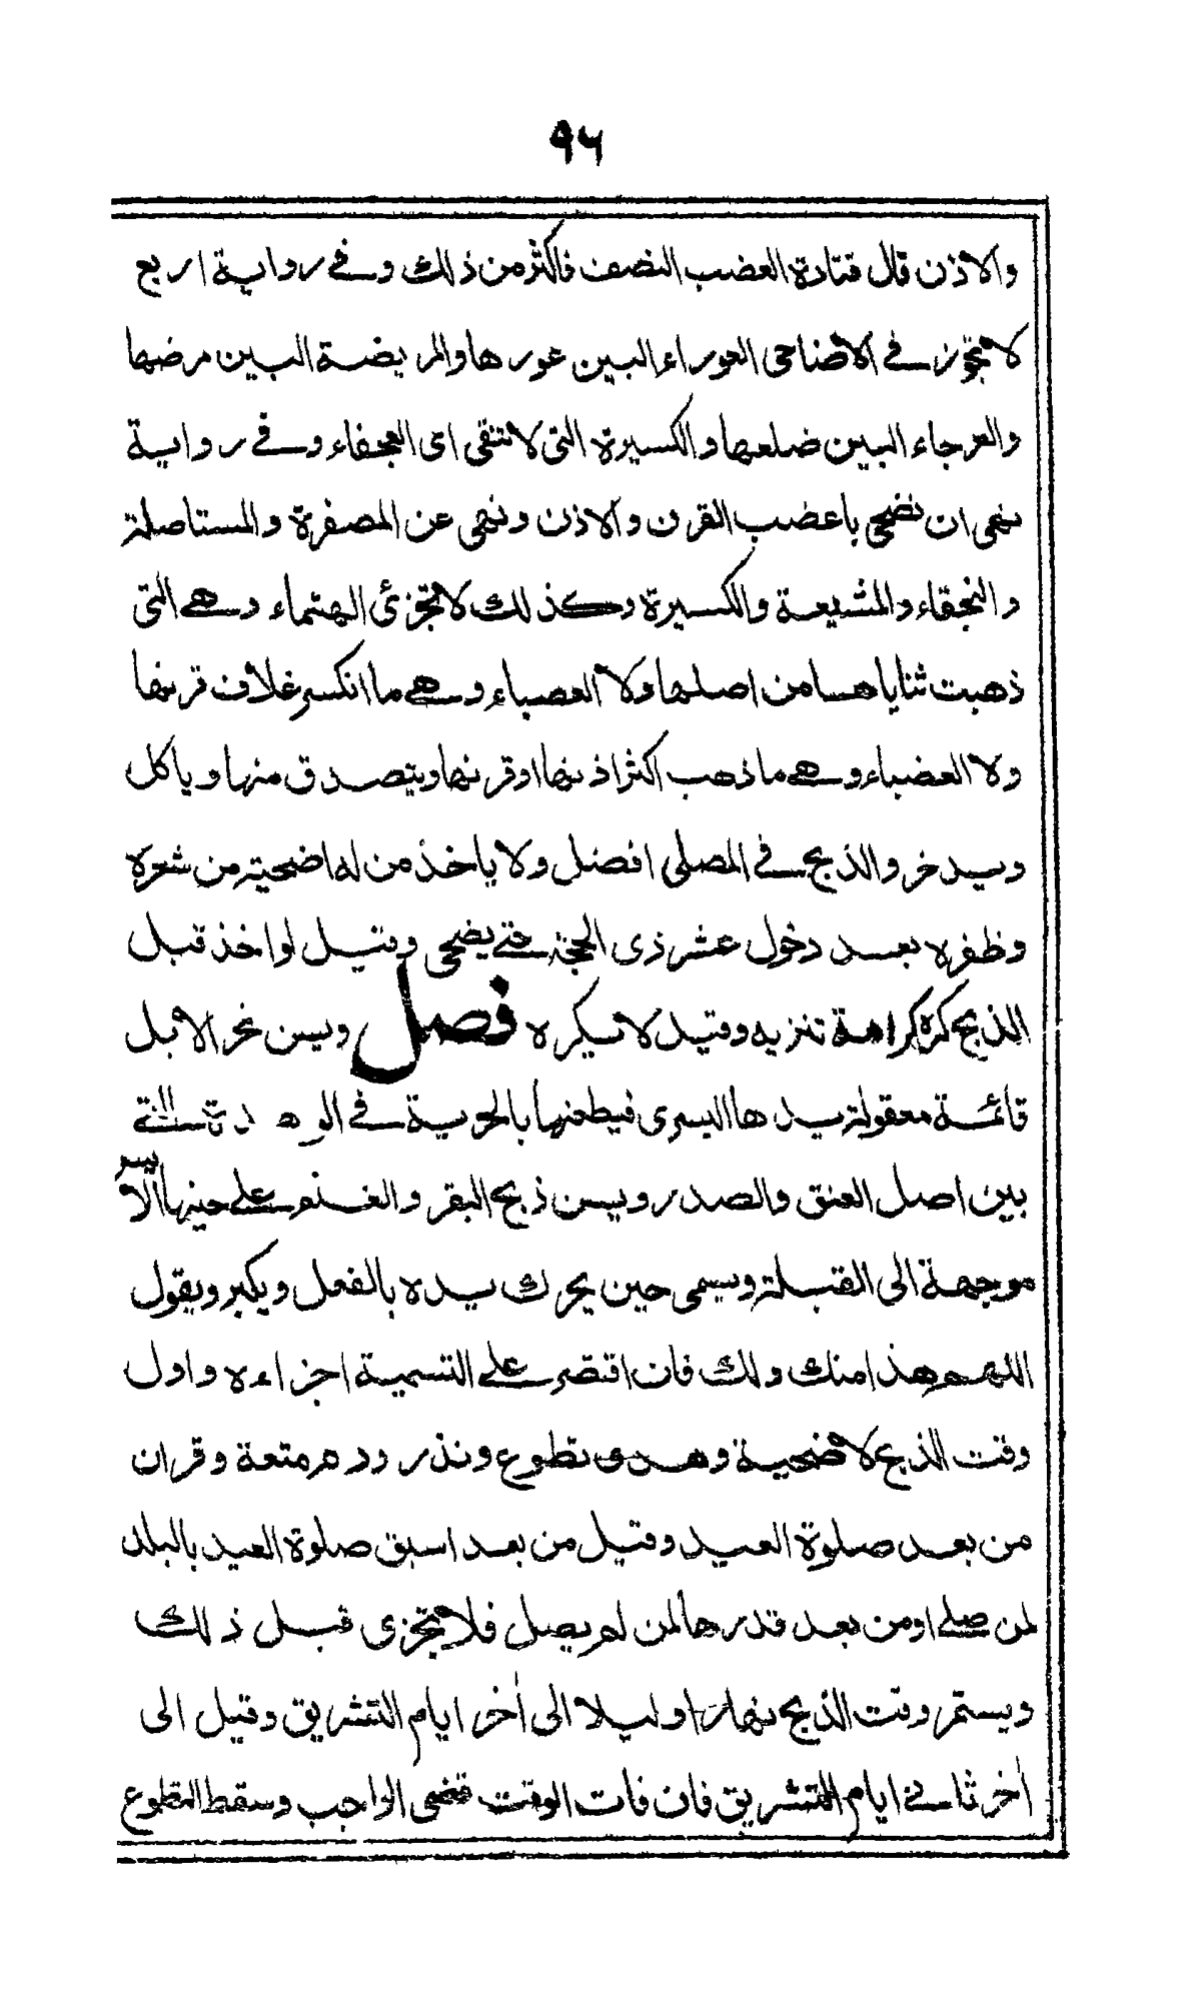 ٩٦
والاذن قال قتادة العضب النصف فاكثر من ذلك وفي رواية اربع
لا تجوز في الاضاحى العوراء البين عورها والمريضة البين مرضها
والعرجاء البين ضلعها والكسيرة التى لا تنقى اى العجفاء وفي رواية
نهى ان نضحى باعضب القرن والاذن ونهى عن المصفرة والمستاصلة
والنجقاء والمشيعة والكسيرة وكذلك لا تجزئ الهتماء وهى التى
ذهبت ثناياها من اصلها ولا العصباء وهى ما انكسر غلاف قرنها
ولا العضباء وهى ما ذهب اكثر اذنها او قرنها ويتصدق منها وياكل
ويدخر والذبح في المصلى افضل ولا ياخذ من له اضحية من شعره
وظفره بعد دخول عشر ذى الحجة حتى يضحى وقيل لو اخذ قبل
الذبح كره كراهة تنزيه وقيل لا يكره فصل ويسن نحر الابل
قائمة معقولة يدها اليسرى فيطعنها بالحربة في الوهدة التى
بين اصل العنق والصدر ويسن ذبح البقر والغنم على جنبها الايسر
موجهة الى القبلة ويسمى حين يحرك يده بالفعل ويكبر ويقول
اللهم هذا منك ولك فان اقتصر على التسمية اجزاءه واول
وقت الذبح لاضحية وهدى تطوع ونذر ودم متعة وقران
من بعد صلوة العيد وقيل من بعد اسبق صلوة العيد بالبلد
لمن صلى او من بعد قدرها لمن لم يصل فلا تجزى قبل ذلك
ويستمر وقت الذبح نهارا وليلا الى أخر ايام التشريق وقيل الى
أخر ثانى ايام التشريق فان فات الوقت قضى الواجب وسقط التطوع